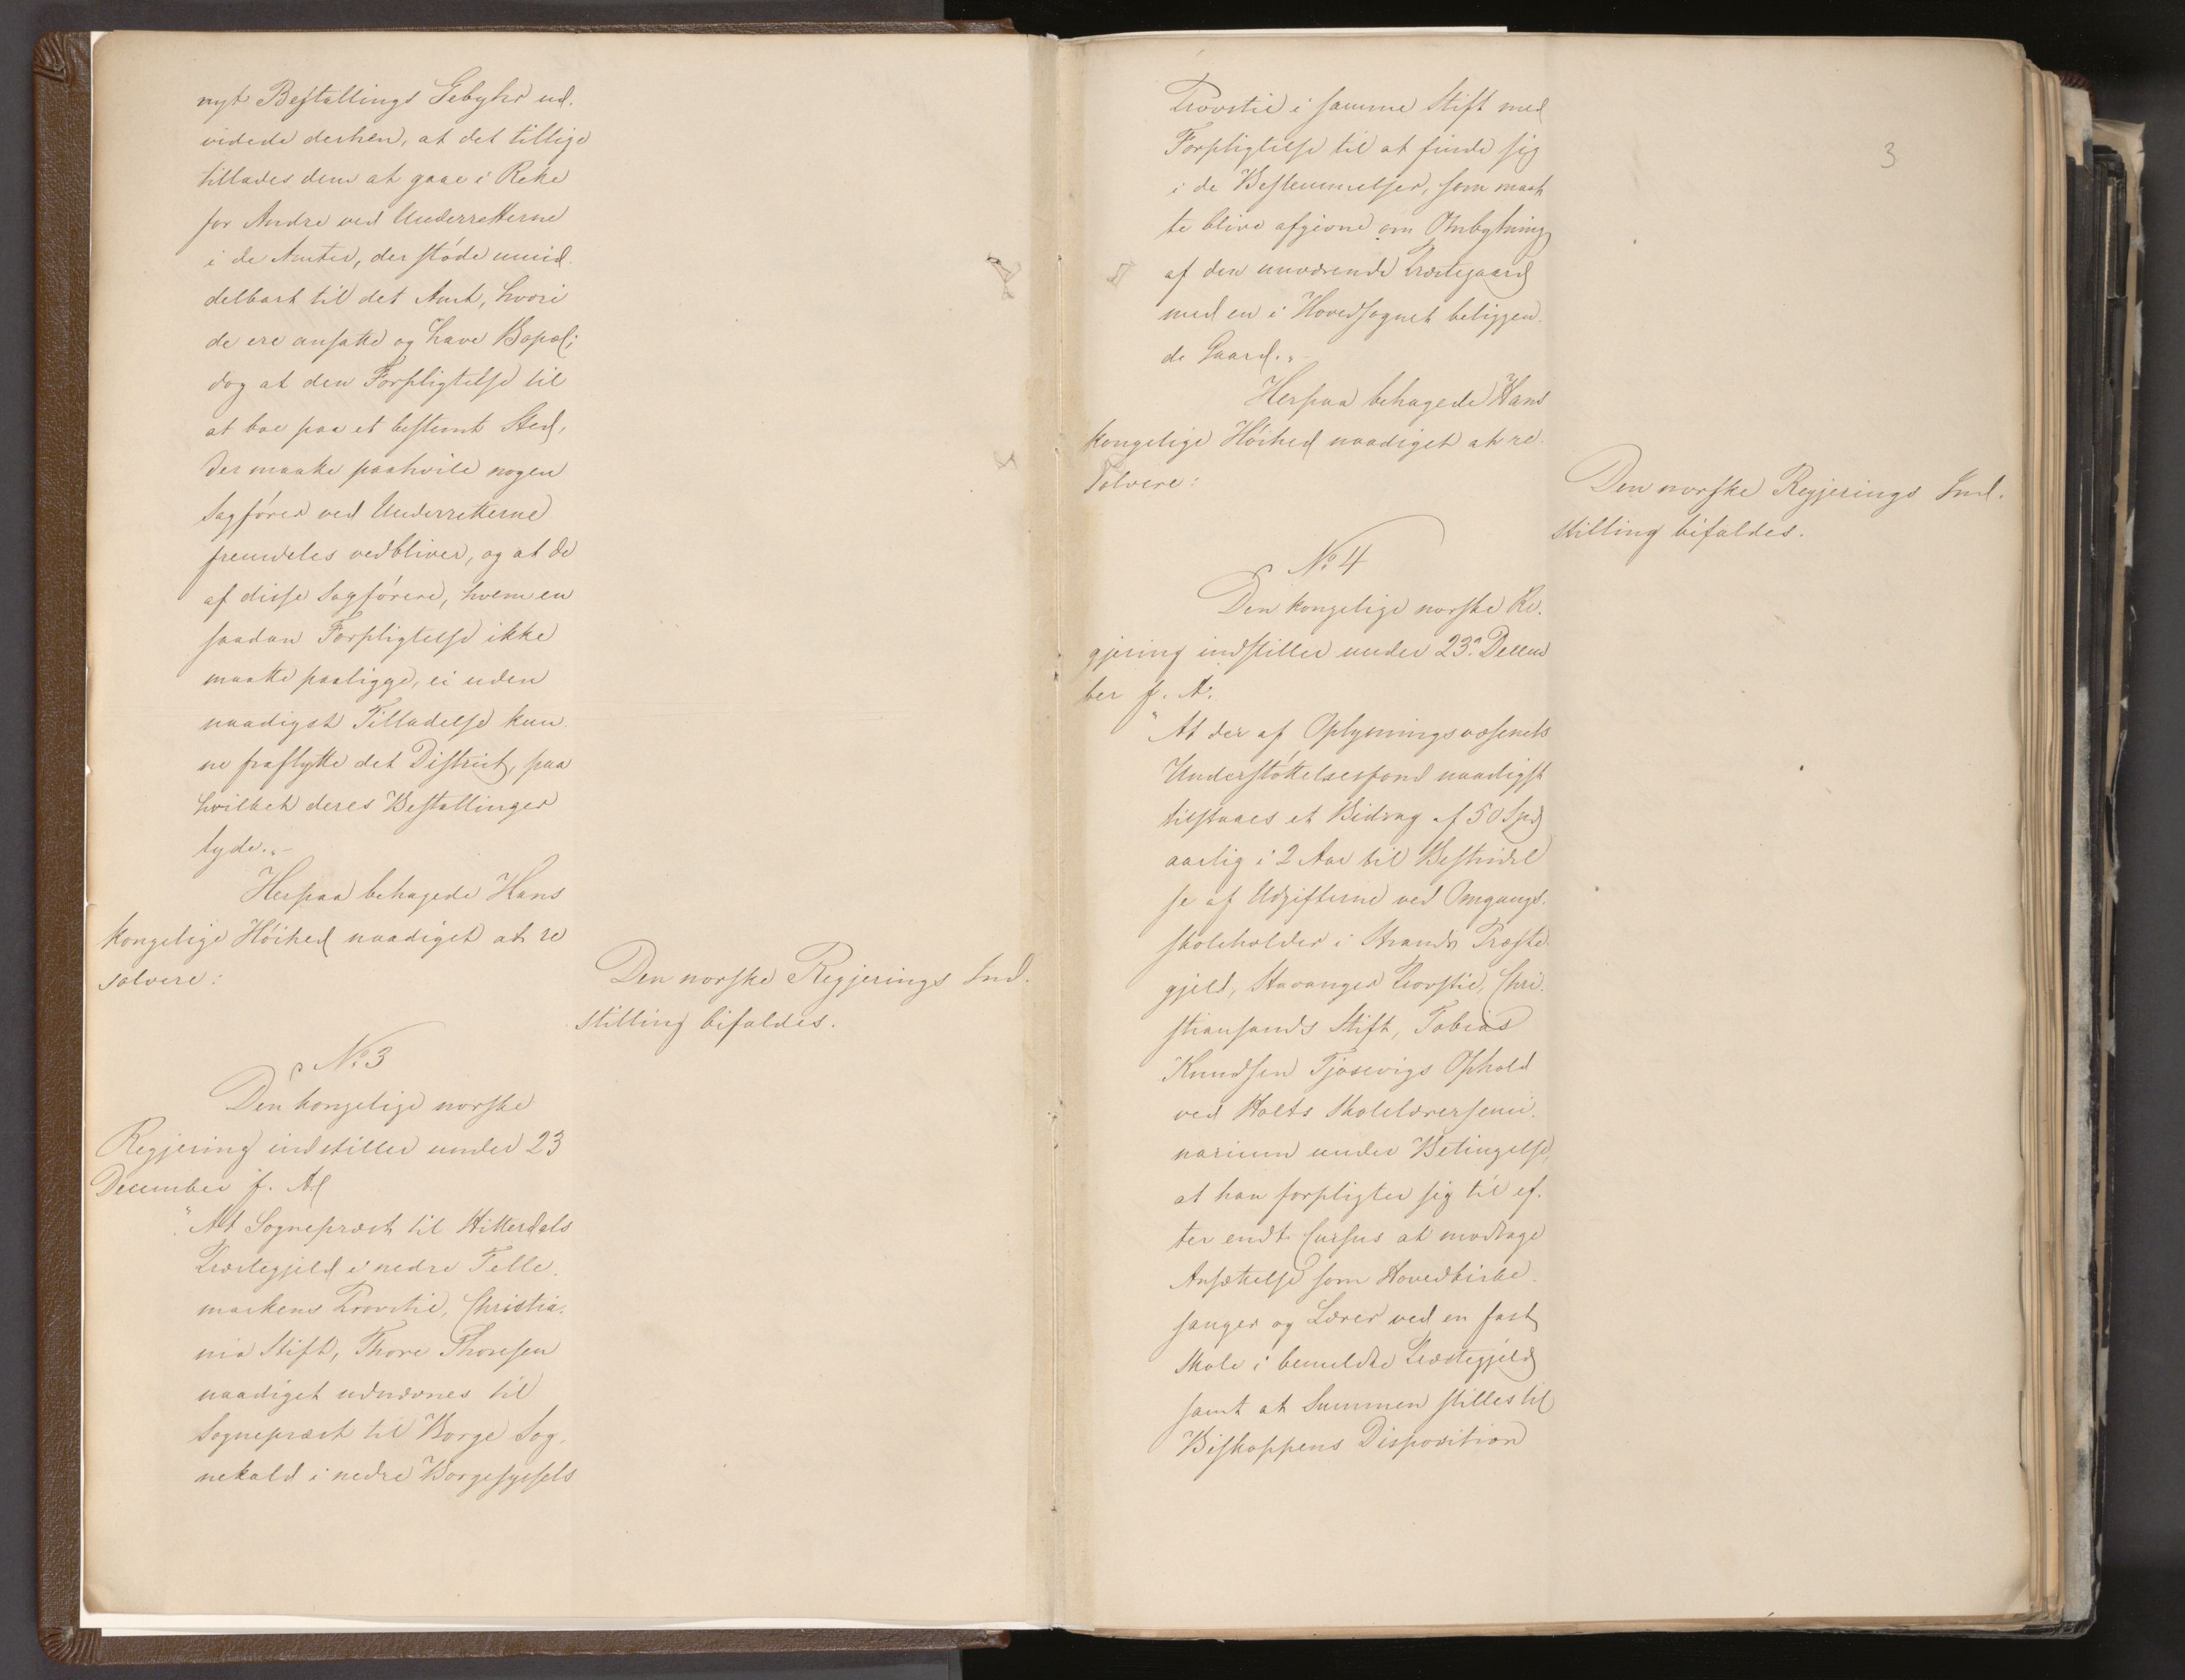 nyt Bestallings Gebyhr ud.
videde derhen, at det tillige
tillades dem at gaae i Rette
for Andre ved Underretterne
i de Amter, der støde umid.
delbart til det Amt, hvori
de ere ansatte og have Bopæl;
dog at den Forpligtelse til
at boe paa et bestemt Sted,
der maatte paahvile nogen
Sagfører ved Underretterne
fremdeles vedbliver, og at de
af disse Sagførere, hvem en
saadan Forpligtelse ikke
maatte paaligge, ei uden
naadigst Tilladelse kun
ne fraflytte det District, paa
hvilket deres Bestallinger
lyde."-
Herpaa behagede Hans
kongelige Høihed naadigst at re
solvere:
Den norske Regjerings Ind.
stilling bifaldes.
No 3
Den kongelige norske
Regjering indstiller under 23
December f. A.
"At Sognepræst til Hitterdals
Præstegjeld i nedre Telle.
markens Provstie, Christia.
nia Stift, Thore Thoresen
naadigst udnævnes til
Sognepræst til Borge Sog.
nekald i nedre Borgesyssels
3
Provstie i samme Stift med
Forpligtelse til at finde sig
i de Bestemmelser, som maat
te blive afgivne om Ombytning
af den nuværende Præstegaard
med en i Hovedsognet beliggen.
de Gaard."-
Herpaa behagede Hans
kongelige Høihed naadigst at re.
solvere:
Den norske Regjerings Ind.
stilling bifaldes.
No 4
Den kongelige norske Re.
gjering indstiller under 23. Decem
ber f. A.
"At der af Oplysningsvæsenets
Understøttelsesfond naadigst
tilstaaes et Bidrag af 50 Spd
aarlig i 2 Aar til Bestridel
se af Udgifterne ved Omgangs.
skoleholder i Strands Præste
gjeld, Stavanger Provstie, Chri.
stiansands Stift, Tobias
Knudsen Tjøsevigs Ophold
ved Holts Skolelærersemi.
narium under Betingelse,
at han forpligter sig til ef.
ter endt Cursus at modtage
Ansættelse som Hovedkirke.
sanger og Lærer ved en fast
Skole i bemeldte Præstegjeld
samt at Summen stilles til
Biskoppens Disposition